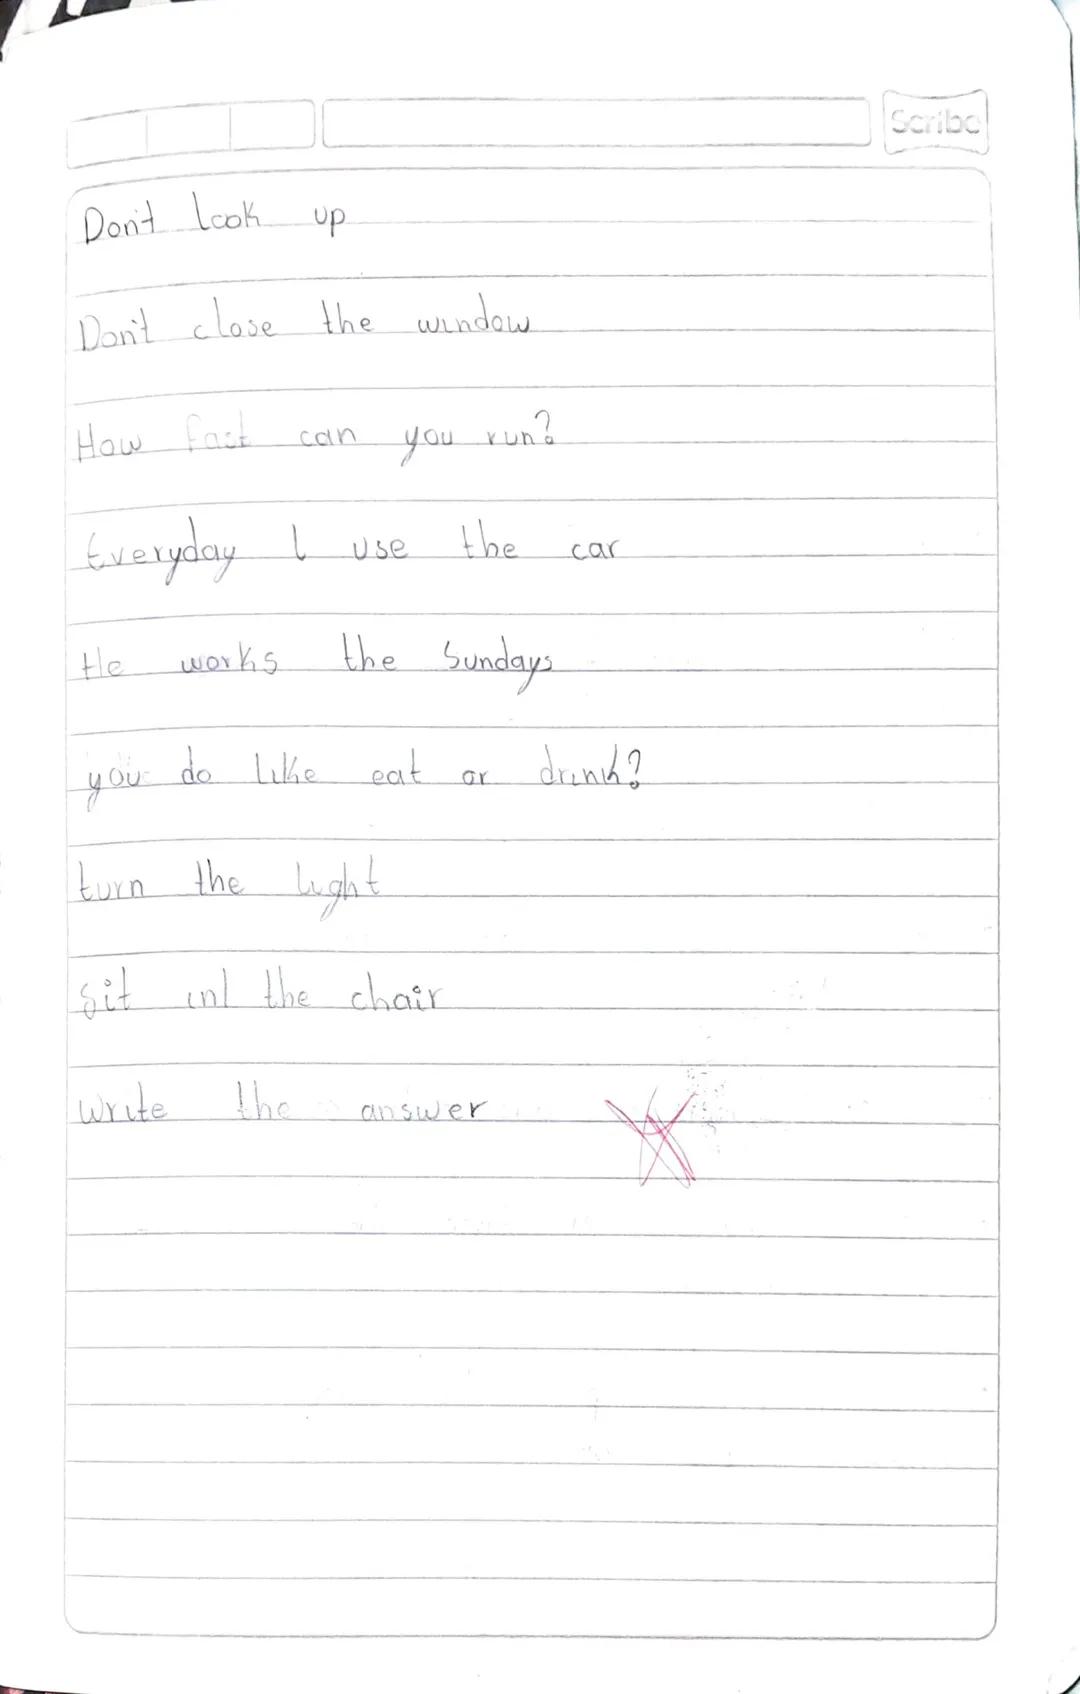 Scribe
Don't look up
Don't close the window
How fast can you run?
Everyday I use the car
He works the Sundays
you do like eat or drink?
turn the light
sit in the chair
write the answer